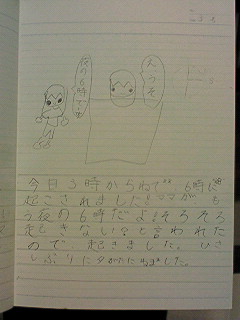 夜の6時です
えっうそ
今日3時からねて6時に
起こされました!ママがも
う夜の6時だよ!そろそろ
起きない?と言われた
ので、起きました。ひさ
しぶりに夕がたにねました。